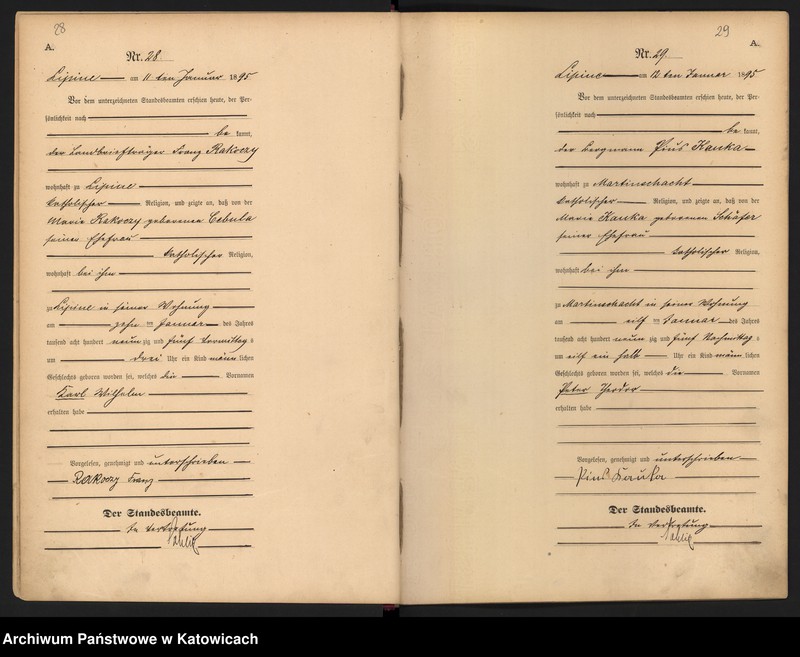 28
A.
Nr. 28.
Lipine am 11 ten Januar 1895
Vor dem unterzeichneten Standesbeamten erschien heute, der Per-
sönlichkeit nach
be kannt,
der Landbriefträger Franz Rakoczy
wohnhaft zu Lipine
katholischer Religion, und zeigte an, daß von der
Marie Rakoczy geborenen Cebula
seiner Ehefrau
katholischer Religion,
wohnhaft bei ihm
zu Lipine in seiner Wohnung
am zehn ten Januar des Jahres
tausend acht hundert neun zig und fünf Vormittag s
um drei Uhr ein Kind männ lichen
Geschlechts geboren worden sei, welches die Vornamen
Karl Wilhelm
erhalten habe
Vorgelesen, genehmigt und unterschrieben
Rakoczy Franz
Der Standesbeamte.
In Vertretung
29
A.
Nr. 29.
Lipine am 12 ten Januar 1895
Vor dem unterzeichneten Standesbeamten erschien heute, der Per-
sönlichkeit nach
be kannt,
der Bergmann Pius Kauka
wohnhaft zu Martinschacht
katholischer Religion, und zeigte an, daß von der
Marie Kauka geborenen Schäfer
seiner Ehefrau
katholischer Religion,
wohnhaft bei ihm
zu Martinschacht in seiner Wohnung
am eilf ten Januar des Jahres
tausend acht hundert neun zig und fünf Nachmittag s
um eilf ein halb Uhr ein Kind männ lichen
Geschlechts geboren worden sei, welches die Vornamen
Peter Theodor
erhalten habe
Vorgelesen, genehmigt und unterschrieben
Pius Kauka
Der Standesbeamte.
In Vertretung
Archiwum Państwowe w Katowicach